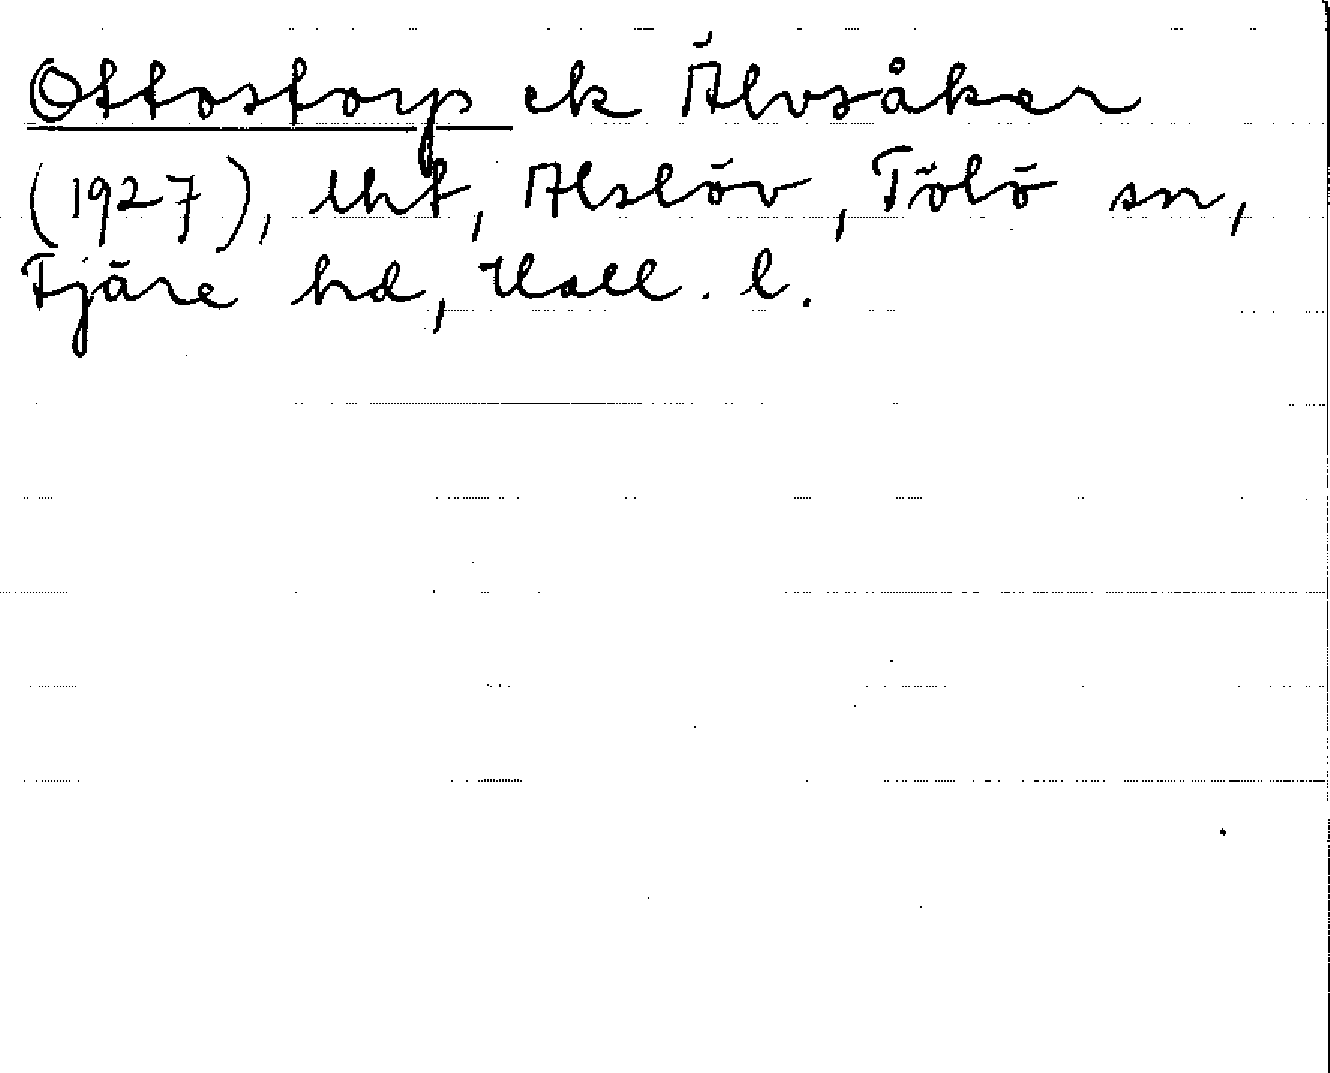 Ottostorp ek Älvsåker
(1927), lht, Alslöv, Tölö sn,
Fjäre hd, Hall. l.